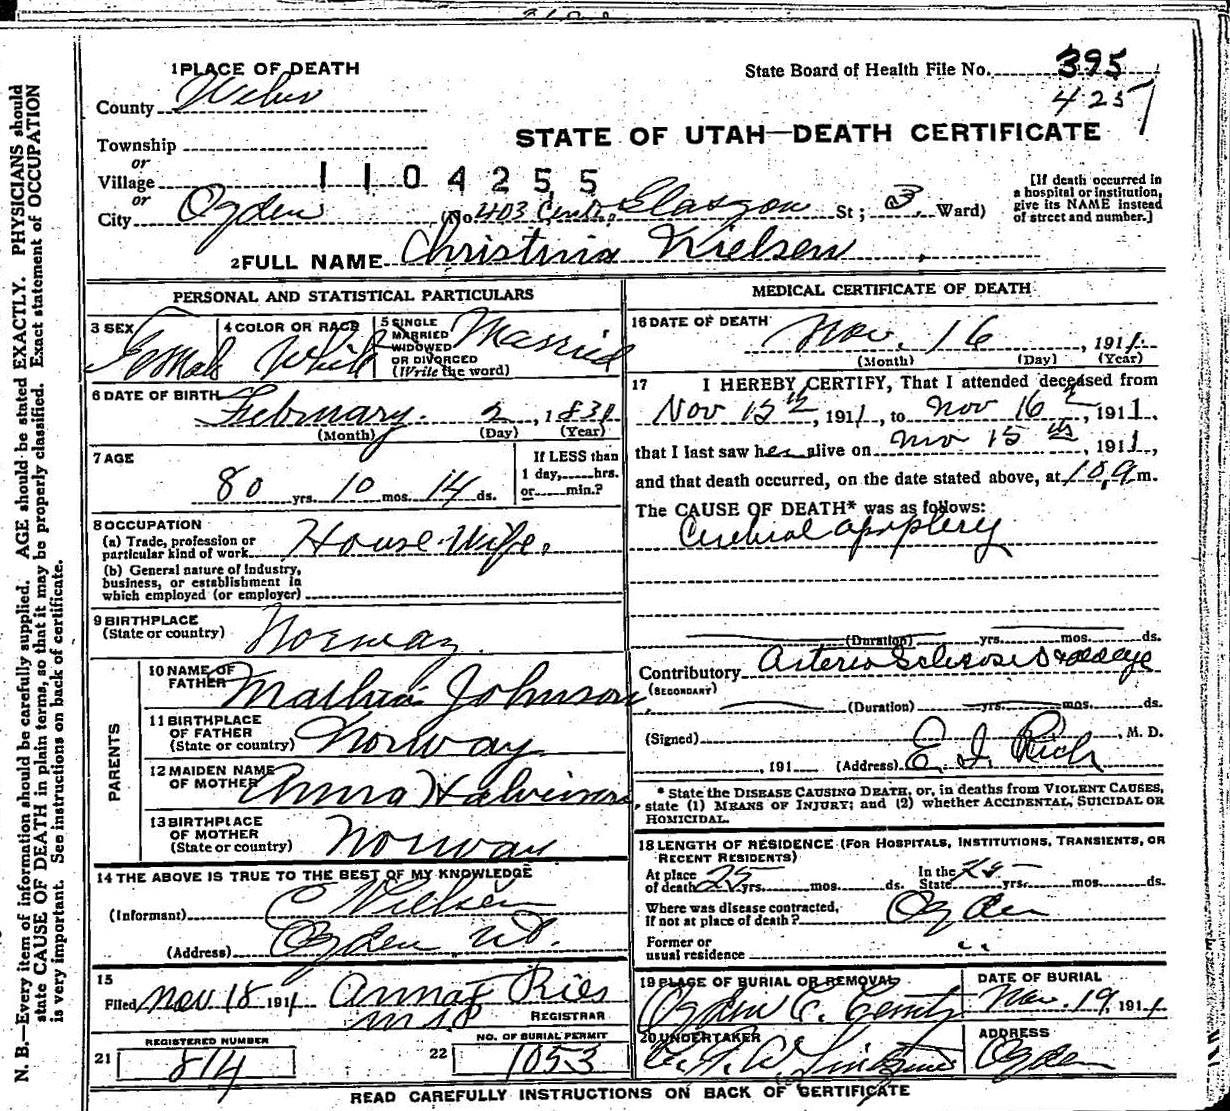 1 PLACE OF DEATH
State Board of Health File No. 395
425
County Weber
STATE OF UTAH—DEATH CERTIFICATE
Township
or
Village 1104255
or
City Ogden (No. 403 Glasgow St; 3. Ward)
[If death occurred in a hospital or institution, give its NAME instead of street and number.]
2 FULL NAME Christina Nielsen
PERSONAL AND STATISTICAL PARTICULARS
3 SEX Female
4 COLOR OR RACE White
5 SINGLE MARRIED WIDOWED OR DIVORCED (Write the word) Married
6 DATE OF BIRTH February 2, 1831
(Month) (Day) (Year)
7 AGE
80 yrs. 10 mos. 14 ds.
If LESS than 1 day, hrs. or min.?
8 OCCUPATION
(a) Trade, profession or particular kind of work House Wife.
(b) General nature of industry, business, or establishment in which employed (or employer)
9 BIRTHPLACE
(State or country) Norway
PARENTS
10 NAME OF FATHER Johnson
11 BIRTHPLACE OF FATHER
(State or country) Norway
12 MAIDEN NAME OF MOTHER Anna
13 BIRTHPLACE OF MOTHER
(State or country) Norway
14 THE ABOVE IS TRUE TO THE BEST OF MY KNOWLEDGE
(Informant) C Nielsen
(Address) Ogden Ut.
15
Filed Nov 18 1911 Anna F Ries
REGISTRAR
21 REGISTERED NUMBER 814
22 NO. OF BURIAL PERMIT 1053
MEDICAL CERTIFICATE OF DEATH
16 DATE OF DEATH Nov. 16, 1911
(Month) (Day) (Year)
17 I HEREBY CERTIFY, That I attended deceased from
Nov 15th, 1911, to Nov 16th, 1911,
that I last saw her alive on Nov 15th, 1911,
and that death occurred, on the date stated above, at 10 a m.
The CAUSE OF DEATH* was as follows:
Cerebral apoplexy
(Duration) yrs. mos. ds.
Contributory Arterio Sclerosis & old age
(SECONDARY)
(Duration) yrs. mos. ds.
(Signed) E. I. Rich, M. D.
, 191 (Address)
* State the DISEASE CAUSING DEATH, or, in deaths from VIOLENT CAUSES, state (1) MEANS OF INJURY; and (2) whether ACCIDENTAL, SUICIDAL OR HOMICIDAL.
18 LENGTH OF RESIDENCE (FOR HOSPITALS, INSTITUTIONS, TRANSIENTS, OR RECENT RESIDENTS)
At place of death 25 yrs. mos. ds. In the State 25 yrs. mos. ds.
Where was disease contracted, If not at place of death? Ogden
Former or usual residence "
19 PLACE OF BURIAL OR REMOVAL Ogden C. Cemty
DATE OF BURIAL Nov. 19, 1911
20 UNDERTAKER
ADDRESS Ogden
READ CAREFULLY INSTRUCTIONS ON BACK OF CERTIFICATE
N. B.—Every item of information should be carefully supplied. AGE should be stated EXACTLY. PHYSICIANS should
state CAUSE OF DEATH in plain terms, so that it may be properly classified. Exact statement of OCCUPATION
is very important. See instructions on back of certificate.